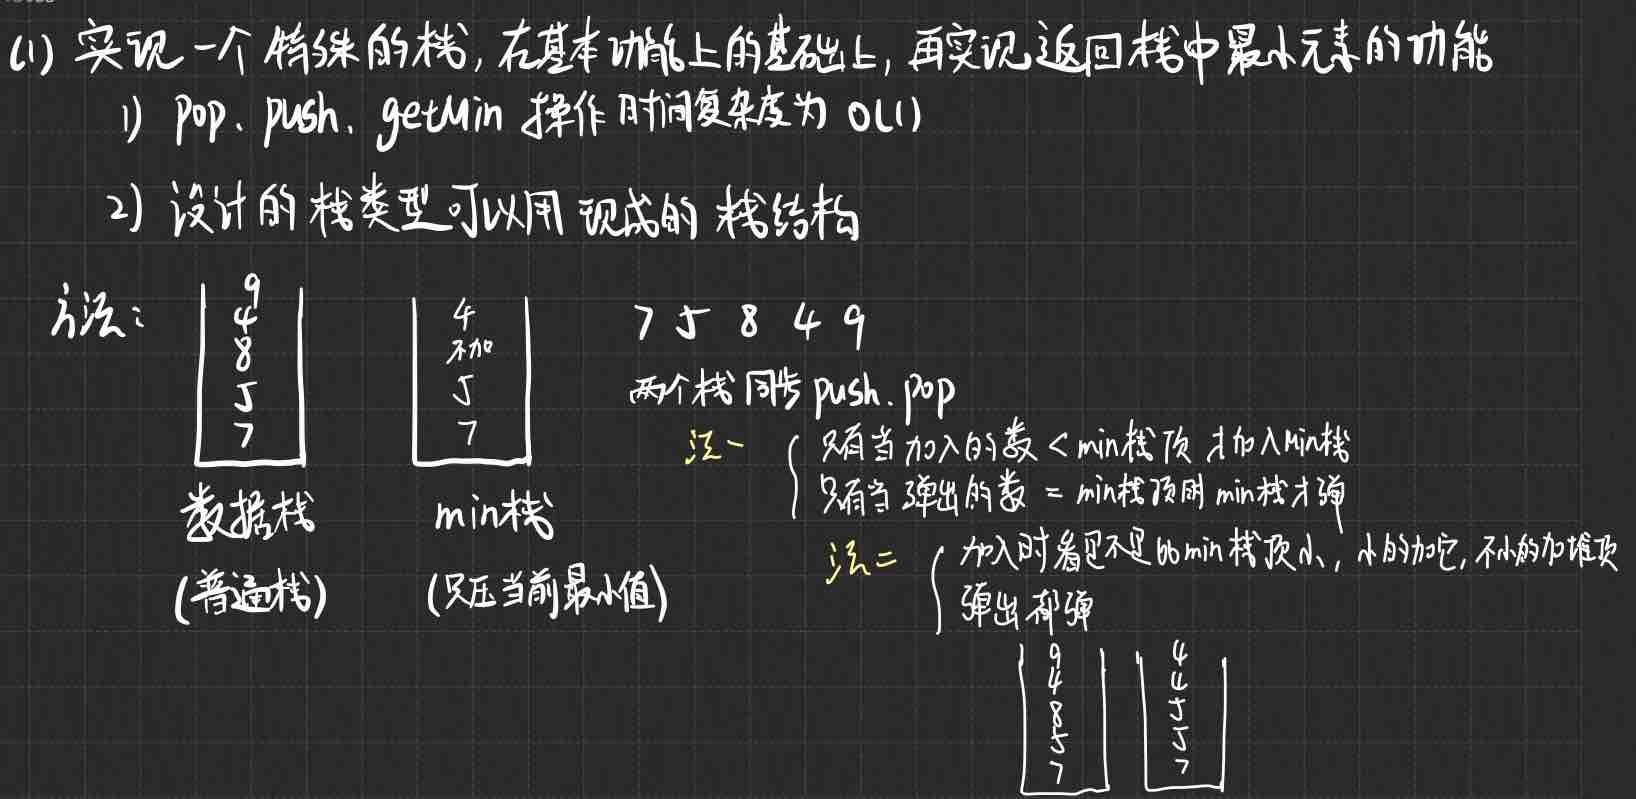 (1) 实现一个特殊的栈,在基本功能上的基础上,再实现返回栈中最小元素的功能
1) pop、push、getMin 操作时间复杂度为 O(1)
2) 设计的栈类型可以用现成的栈结构
方法:
9
4
8
5
7
数据栈
(普通栈)
4
不加
5
7
min栈
(只压当前最小值)
7 5 8 4 9
两个栈同步push、pop
法一
只有当加入的数 < min栈顶 才加入min栈
只有当弹出的数 = min栈顶时 min栈才弹
法二
加入时看是不是比min栈顶小,小的加它,不小的加堆顶
弹出都弹
9
4
8
5
7
4
4
5
5
7